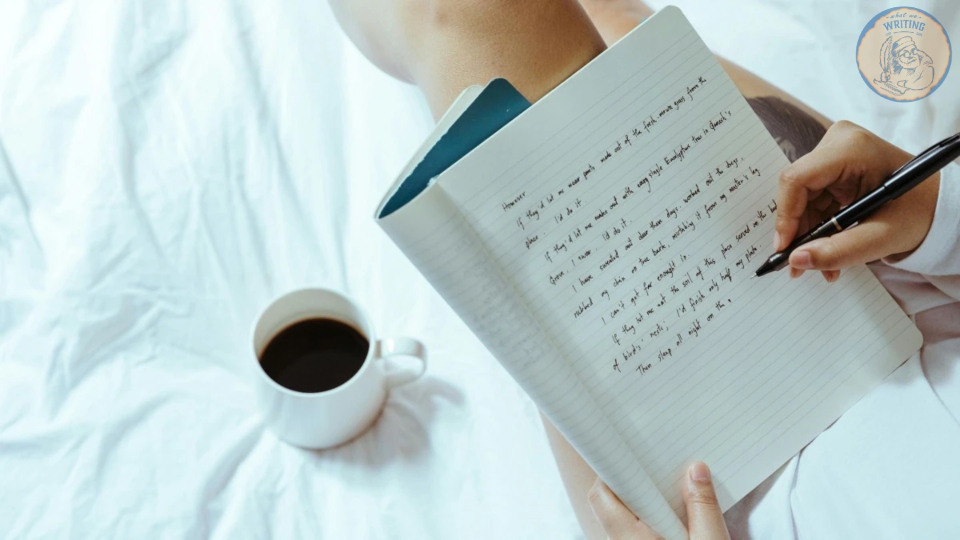 what me
WRITING
However
If they'd let me wear pants made out of the from the
place, I'd do it
If they'd let me make out with every single Eucalyptus tree in
farm, I swear, I'd do it.
I have sweated out dear them days, worked out the days,
my chin on the bark, mistaking it from my leg
I can't get far enough in.
If they let me eat the soil of this place served on the bed
of birds' nests, I'd finish only half my plate.
Then sleep all night on the